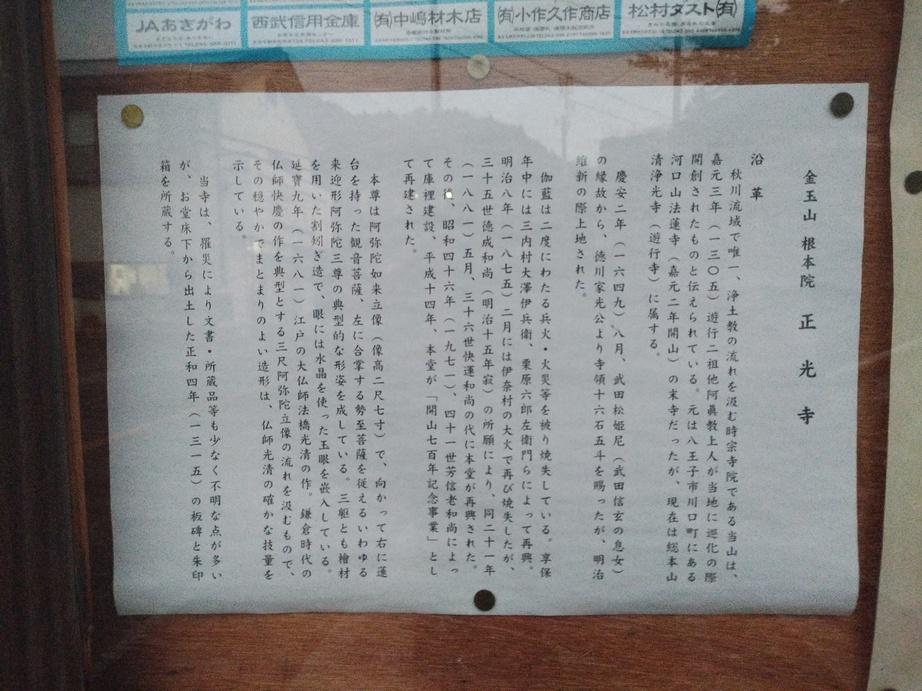 JAあきがわ
西武信用金庫
㈲中嶋材木店
㈲小作久作商店
松村ダスト㈲
金玉山 根本院 正光寺
沿革
秋川流域で唯一、浄土教の流れを汲む時宗寺院である当山は、
嘉元三年（一三〇五）遊行二祖他阿眞教上人が当地に巡化の際
開創されたものと伝えられている。元は八王子市川口町にある
河口山法蓮寺（嘉元二年開山）の末寺だったが、現在は総本山
清浄光寺（遊行寺）に属する。
慶安二年（一六四九）八月、武田松姫尼（武田信玄の息女）
の縁故から、徳川家光公より寺領十六石五斗を賜ったが、明治
維新の際上地された。
伽藍は二度にわたる兵火・火災等を被り焼失している。享保
年中には三内村大澤伊兵衛、栗原六郎左衛門らによって再興。
明治八年（一八七五）二月には伊奈村の大火で再び焼失したが、
三十五世徳成和尚（明治十五年寂）の所願により、同二十一年
（一八八一）五月、三十六世快運和尚の代に本堂が再興された。
その、昭和四十六年（一九七一）、四十一世芳信老和尚によっ
て庫裡建設、平成十四年、本堂が「開山七百年記念事業」とし
て再建された。
本尊は阿弥陀如来立像（像高二尺七寸）で、向かって右に蓮
台を持った観音菩薩、左に合掌する勢至菩薩を従えるいわゆる
来迎形阿弥陀三尊の典型的な形姿を成している。三躯とも檜材
を用いた割矧ぎ造で、眼には水晶を使った玉眼を嵌入している。
延寶九年（一六八一）江戸の大仏師法橋光清の作。鎌倉時代の
仏師快慶の作を典型とする三尺阿弥陀立像の流れを汲むもので、
その穏やかでまとまりのよい造形は、仏師光清の確かな技量を
示している。
当寺は、罹災により文書・所蔵品等も少なく不明な点が多い
が、お堂床下から出土した正和四年（一三一五）の板碑と朱印
箱を所蔵する。